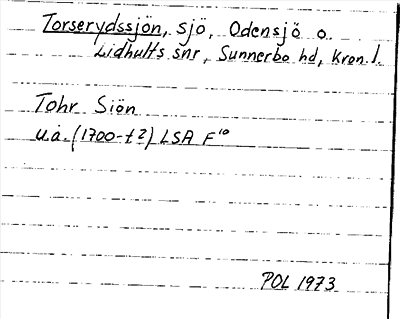 Torserydssjön, sjö, Odensjö o.
Lidhults snr, Sunnerbo hd, Kron. l.
Tohr Siön
u.å. (1700-t ?) LSA F¹⁰
POL 1973